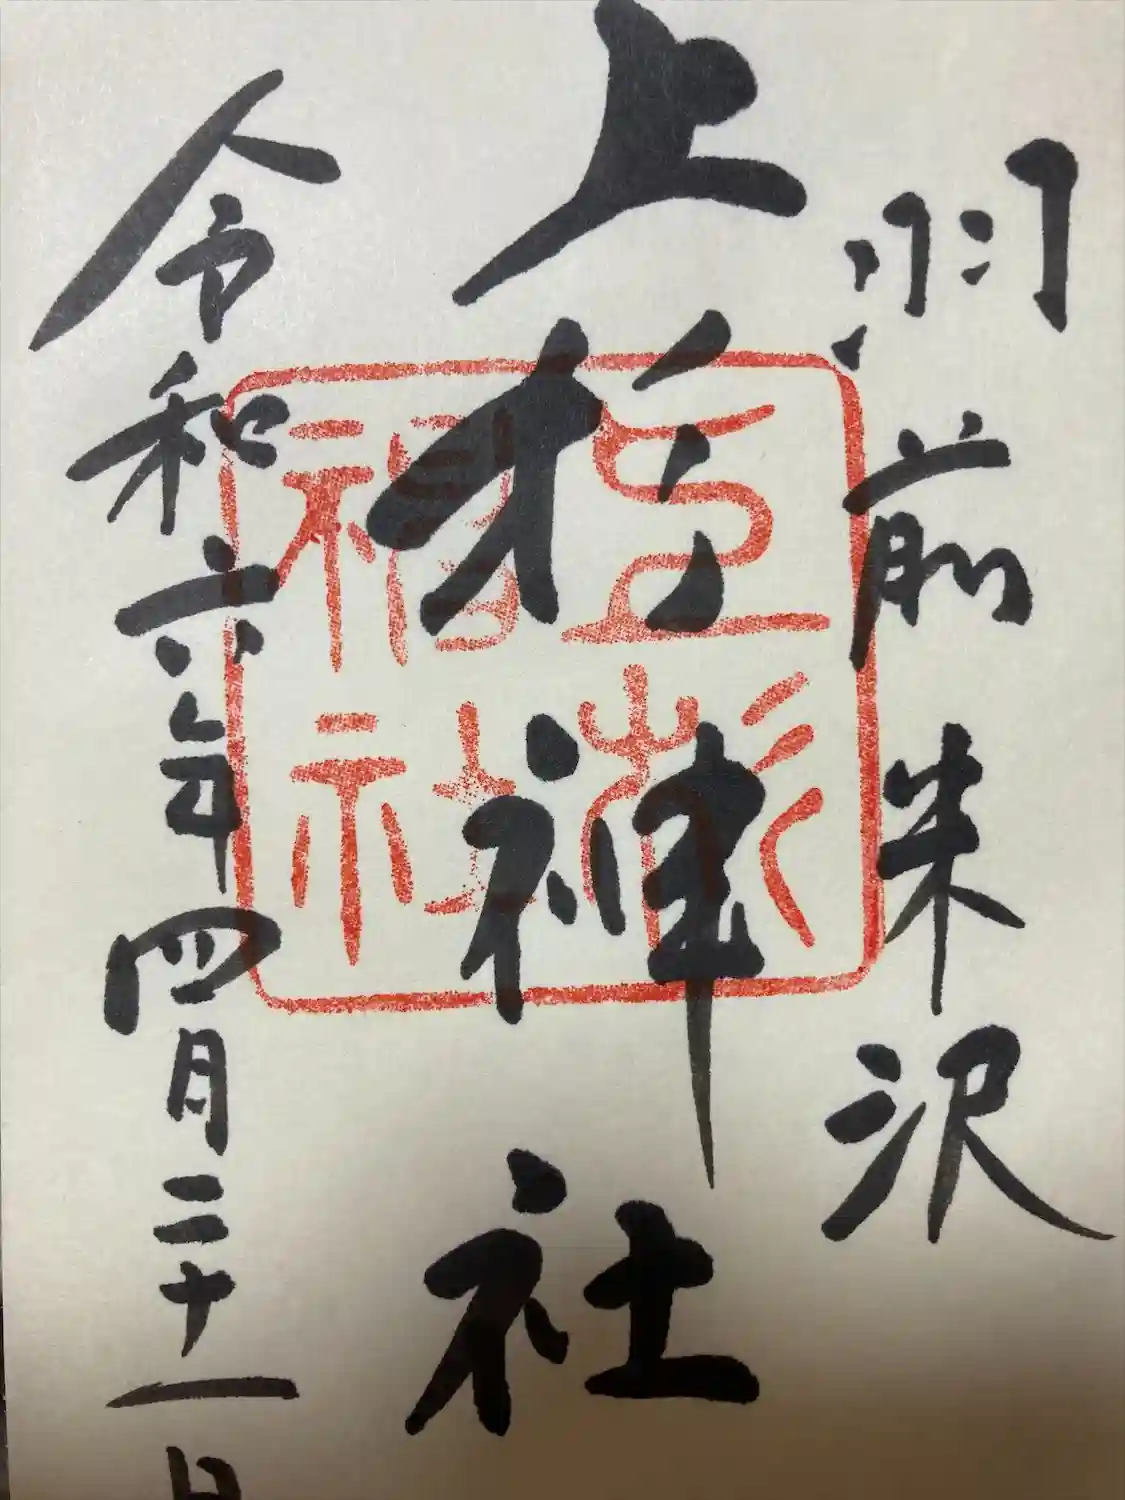 羽前米沢
上杉神社
令和六年四月二十一日
上杉
神社